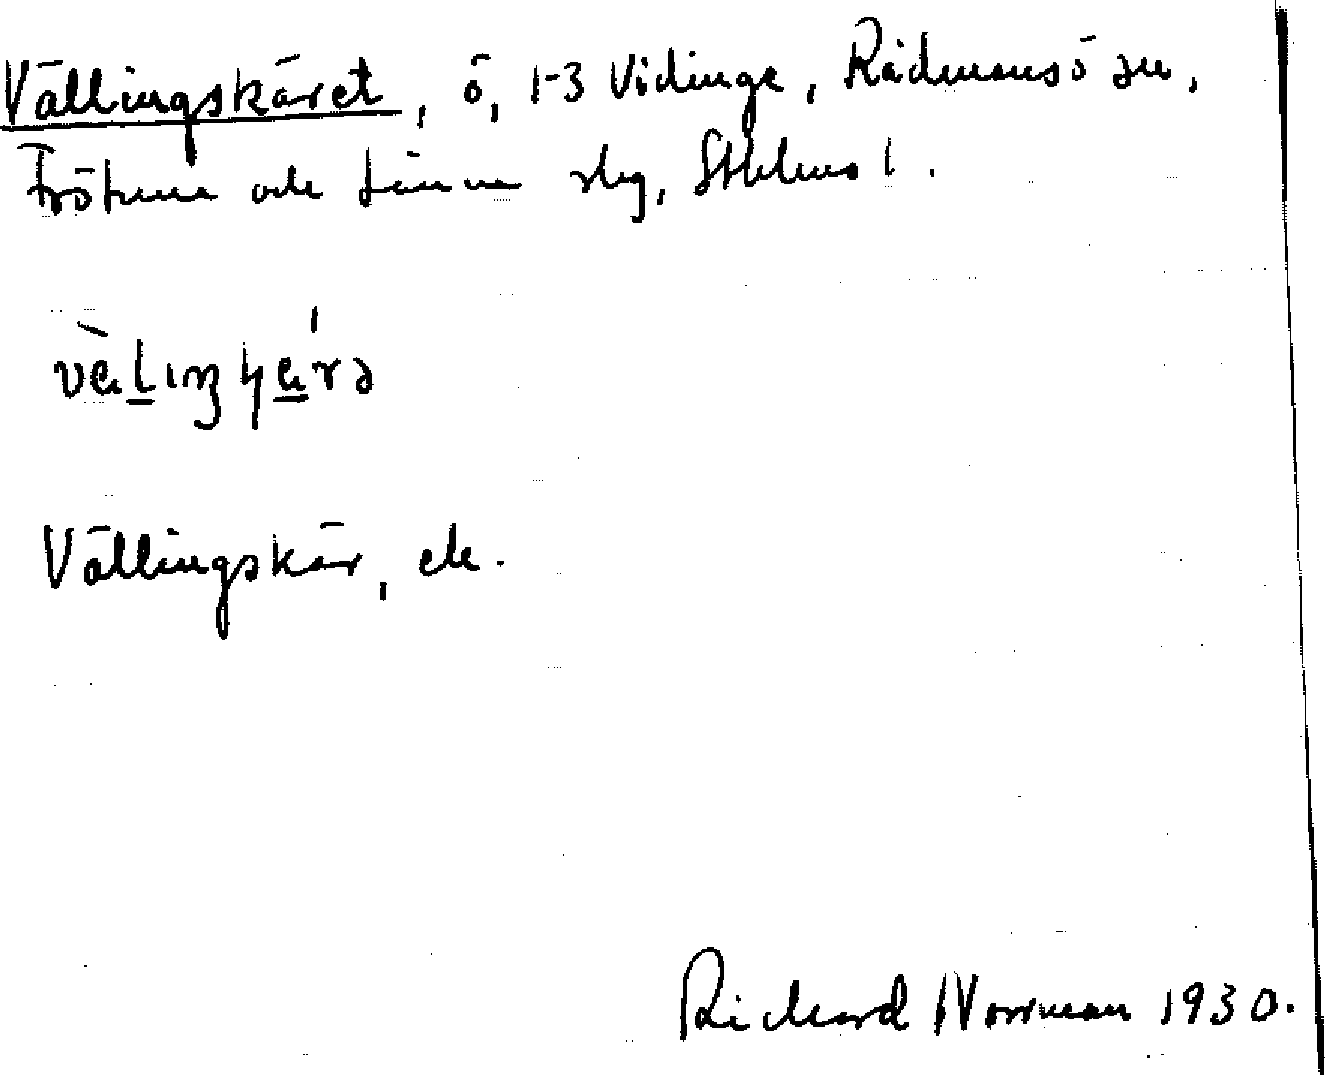 Vällingskäret, ö, 1-3 Vidinge, Rådmansö sn,
Frötuna och Länna slg, Sthlms l.
vèlıŋʂɕérə
Vällingskär, ek.
Richard Norrman 1930.